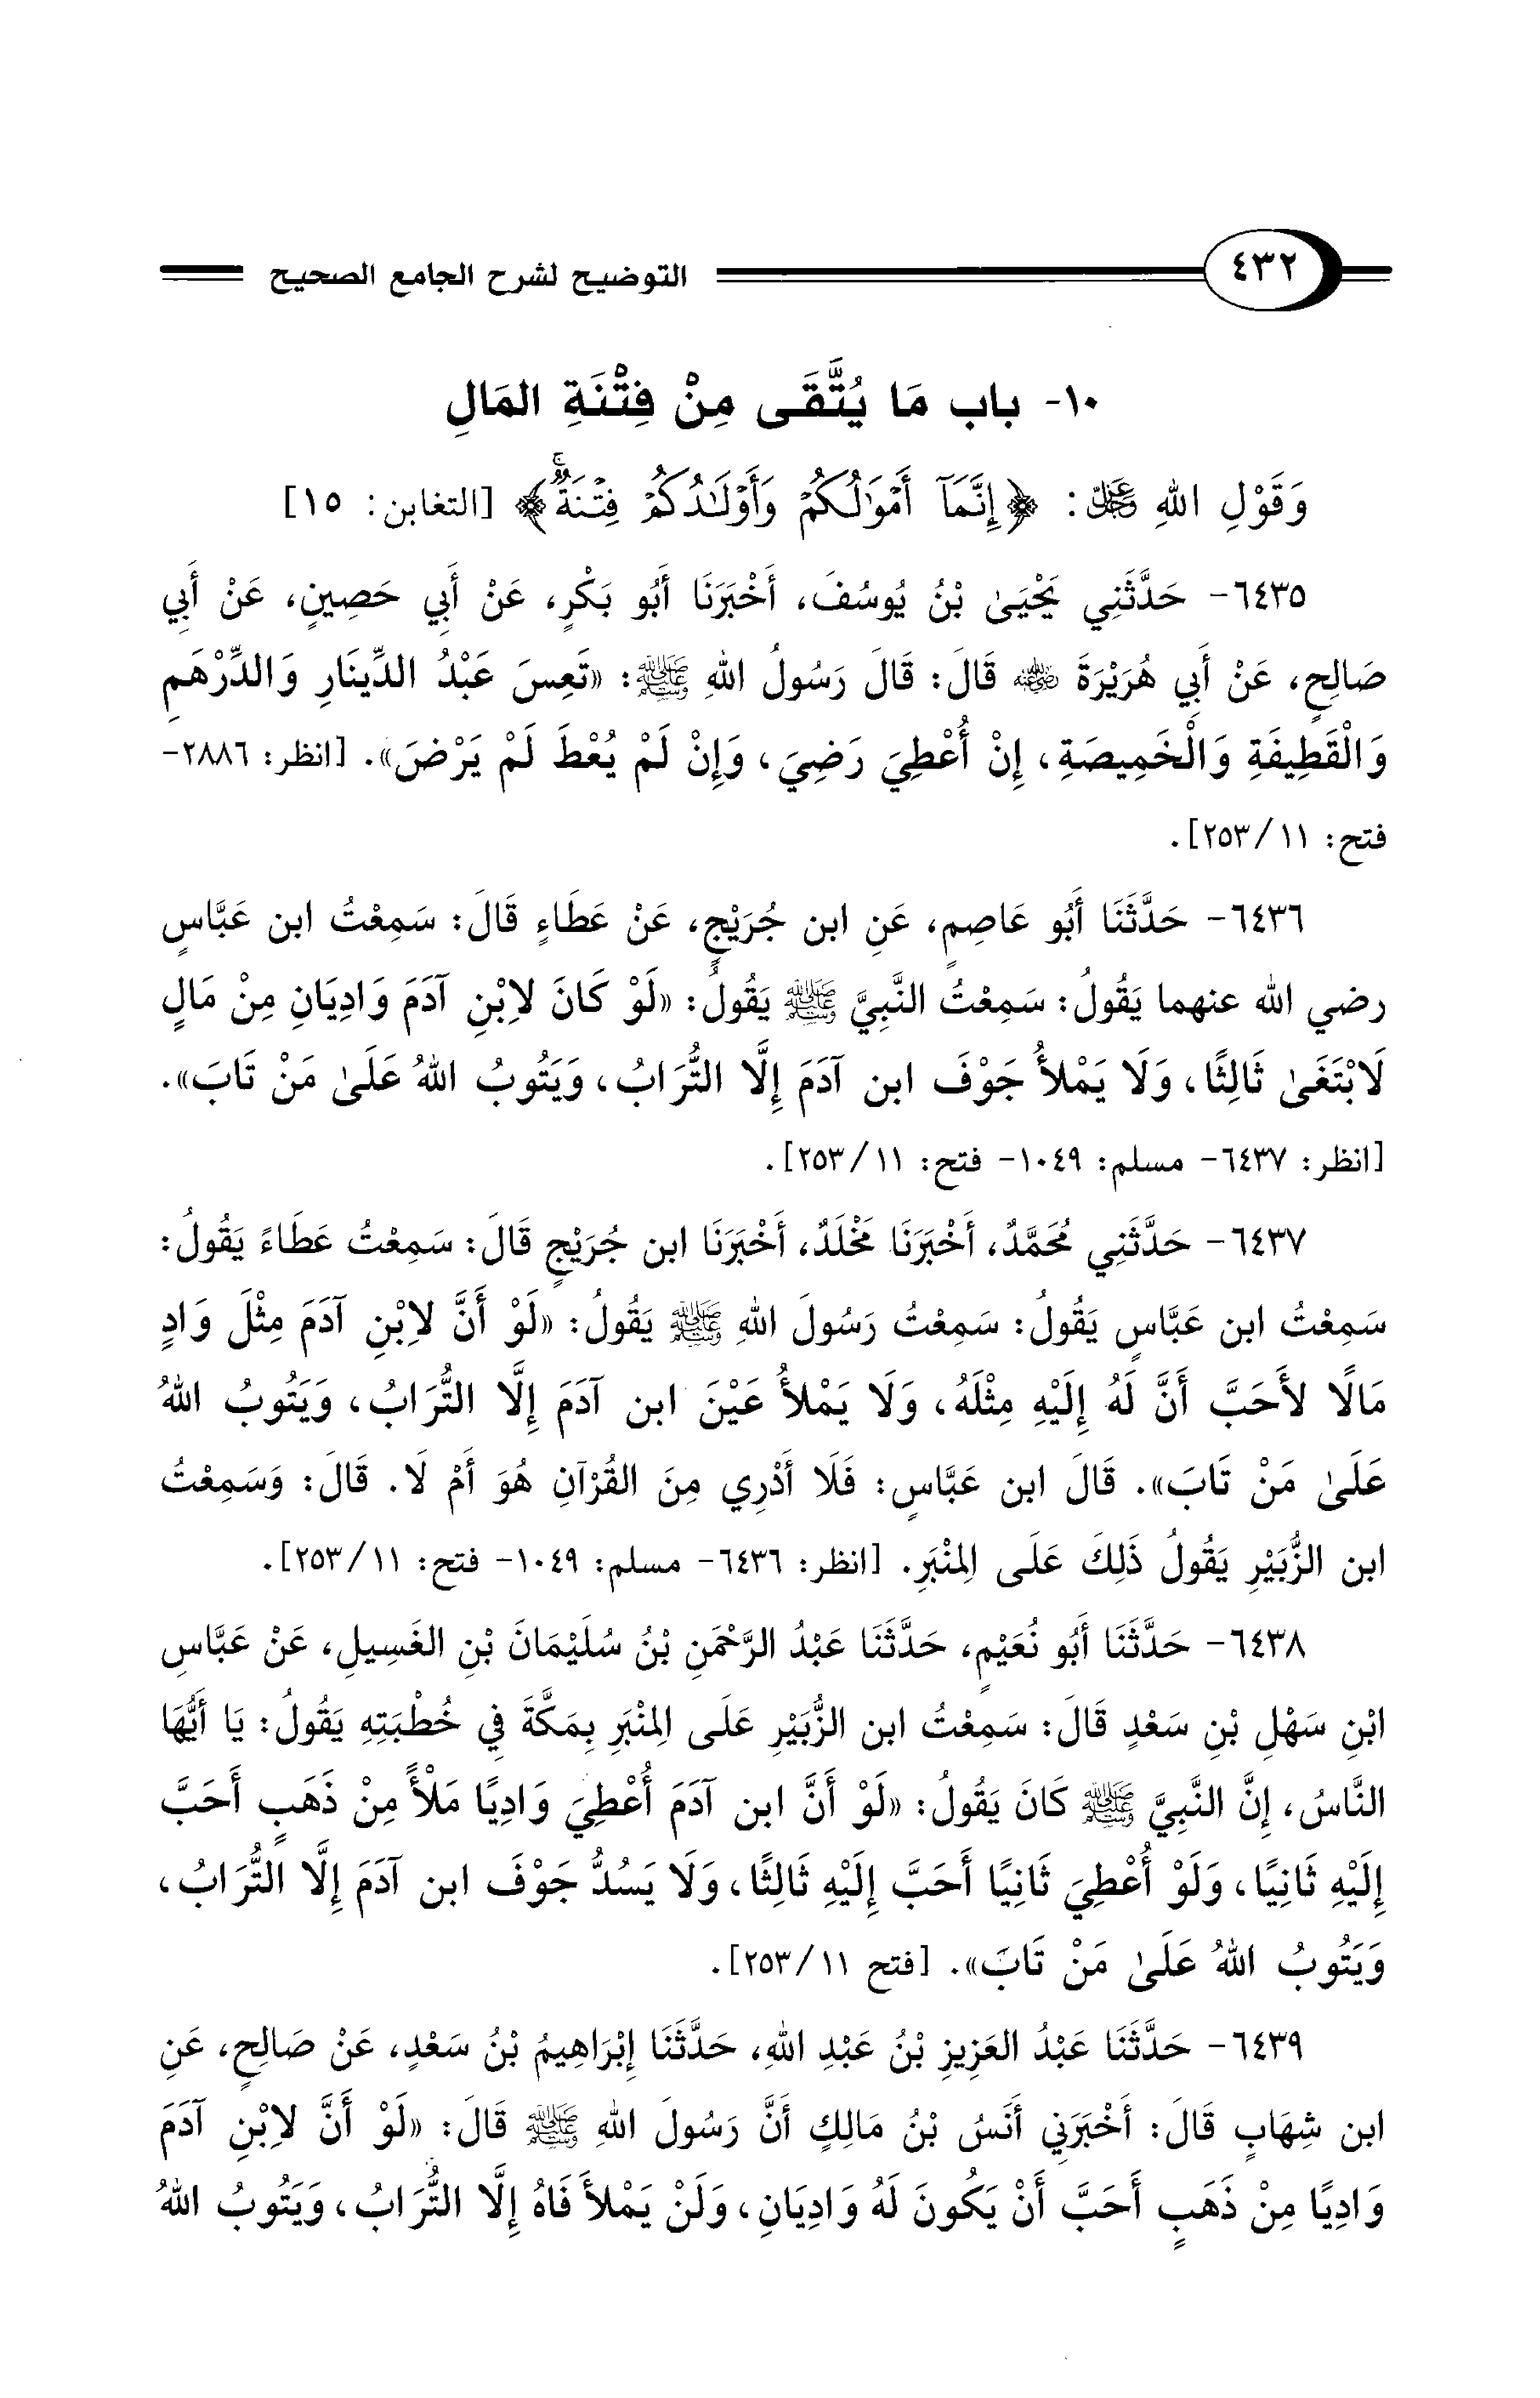 ٤٣٢
التوضيح لشرح الجامع الصحيح
١٠- باب مَا يُتَّقَى مِنْ فِتْنَةِ المَالِ
وَقَوْلِ اللهِ ﷿: ﴿إِنَّمَآ أَمْوَٰلُكُمْ وَأَوْلَـٰدُكُمْ فِتْنَةٌۚ﴾ [التغابن: ١٥]
٦٤٣٥- حَدَّثَنِي يَحْيَىٰ بْنُ يُوسُفَ، أَخْبَرَنَا أَبُو بَكْرٍ، عَنْ أَبِي حَصِينٍ، عَنْ أَبِي
صَالِحٍ، عَنْ أَبِي هُرَيْرَةَ رضي الله عنه قَالَ: قَالَ رَسُولُ اللهِ ﷺ: «تَعِسَ عَبْدُ الدِّينَارِ وَالدِّرْهَمِ
وَالْقَطِيفَةِ وَالْخَمِيصَةِ، إِنْ أُعْطِيَ رَضِيَ، وَإِنْ لَمْ يُعْطَ لَمْ يَرْضَ». [انظر: ٢٨٨٦-
فتح: ١١/ ٢٥٣].
٦٤٣٦- حَدَّثَنَا أَبُو عَاصِمٍ، عَنِ ابن جُرَيْجٍ، عَنْ عَطَاءٍ قَالَ: سَمِعْتُ ابن عَبَّاسٍ
رضي الله عنهما يَقُولُ: سَمِعْتُ النَّبِيَّ ﷺ يَقُولُ: «لَوْ كَانَ لاِبْنِ آدَمَ وَادِيَانِ مِنْ مَالٍ
لَابْتَغَىٰ ثَالِثًا، وَلَا يَمْلأُ جَوْفَ ابن آدَمَ إِلَّا التُّرَابُ، وَيَتُوبُ اللهُ عَلَىٰ مَنْ تَابَ».
[انظر: ٦٤٣٧- مسلم: ١٠٤٩- فتح: ١١/ ٢٥٣].
٦٤٣٧- حَدَّثَنِي مُحَمَّدٌ، أَخْبَرَنَا مَخْلَدٌ، أَخْبَرَنَا ابن جُرَيْجٍ قَالَ: سَمِعْتُ عَطَاءً يَقُولُ:
سَمِعْتُ ابن عَبَّاسٍ يَقُولُ: سَمِعْتُ رَسُولَ اللهِ ﷺ يَقُولُ: «لَوْ أَنَّ لاِبْنِ آدَمَ مِثْلَ وَادٍ
مَالًا لأَحَبَّ أَنَّ لَهُ إِلَيْهِ مِثْلَهُ، وَلَا يَمْلأُ عَيْنَ ابن آدَمَ إِلَّا التُّرَابُ، وَيَتُوبُ اللهُ
عَلَىٰ مَنْ تَابَ». قَالَ ابن عَبَّاسٍ: فَلَا أَدْرِي مِنَ القُرْآنِ هُوَ أَمْ لَا. قَالَ: وَسَمِعْتُ
ابن الزُّبَيْرِ يَقُولُ ذَلِكَ عَلَى المِنْبَرِ. [انظر: ٦٤٣٦- مسلم: ١٠٤٩- فتح: ١١/ ٢٥٣].
٦٤٣٨- حَدَّثَنَا أَبُو نُعَيْمٍ، حَدَّثَنَا عَبْدُ الرَّحْمَنِ بْنُ سُلَيْمَانَ بْنِ الغَسِيلِ، عَنْ عَبَّاسِ
ابْنِ سَهْلِ بْنِ سَعْدٍ قَالَ: سَمِعْتُ ابن الزُّبَيْرِ عَلَى المِنْبَرِ بِمَكَّةَ فِي خُطْبَتِهِ يَقُولُ: يَا أَيُّهَا
النَّاسُ، إِنَّ النَّبِيَّ ﷺ كَانَ يَقُولُ: «لَوْ أَنَّ ابن آدَمَ أُعْطِيَ وَادِيًا مَلْأً مِنْ ذَهَبٍ أَحَبَّ
إِلَيْهِ ثَانِيًا، وَلَوْ أُعْطِيَ ثَانِيًا أَحَبَّ إِلَيْهِ ثَالِثًا، وَلَا يَسُدُّ جَوْفَ ابن آدَمَ إِلَّا التُّرَابُ،
وَيَتُوبُ اللهُ عَلَىٰ مَنْ تَابَ». [فتح ١١/ ٢٥٣].
٦٤٣٩- حَدَّثَنَا عَبْدُ العَزِيزِ بْنُ عَبْدِ اللهِ، حَدَّثَنَا إِبْرَاهِيمُ بْنُ سَعْدٍ، عَنْ صَالِحٍ، عَنِ
ابن شِهَابٍ قَالَ: أَخْبَرَنِي أَنَسُ بْنُ مَالِكٍ أَنَّ رَسُولَ اللهِ ﷺ قَالَ: «لَوْ أَنَّ لاِبْنِ آدَمَ
وَادِيًا مِنْ ذَهَبٍ أَحَبَّ أَنْ يَكُونَ لَهُ وَادِيَانِ، وَلَنْ يَمْلأَ فَاهُ إِلَّا التُّرَابُ، وَيَتُوبُ اللهُ